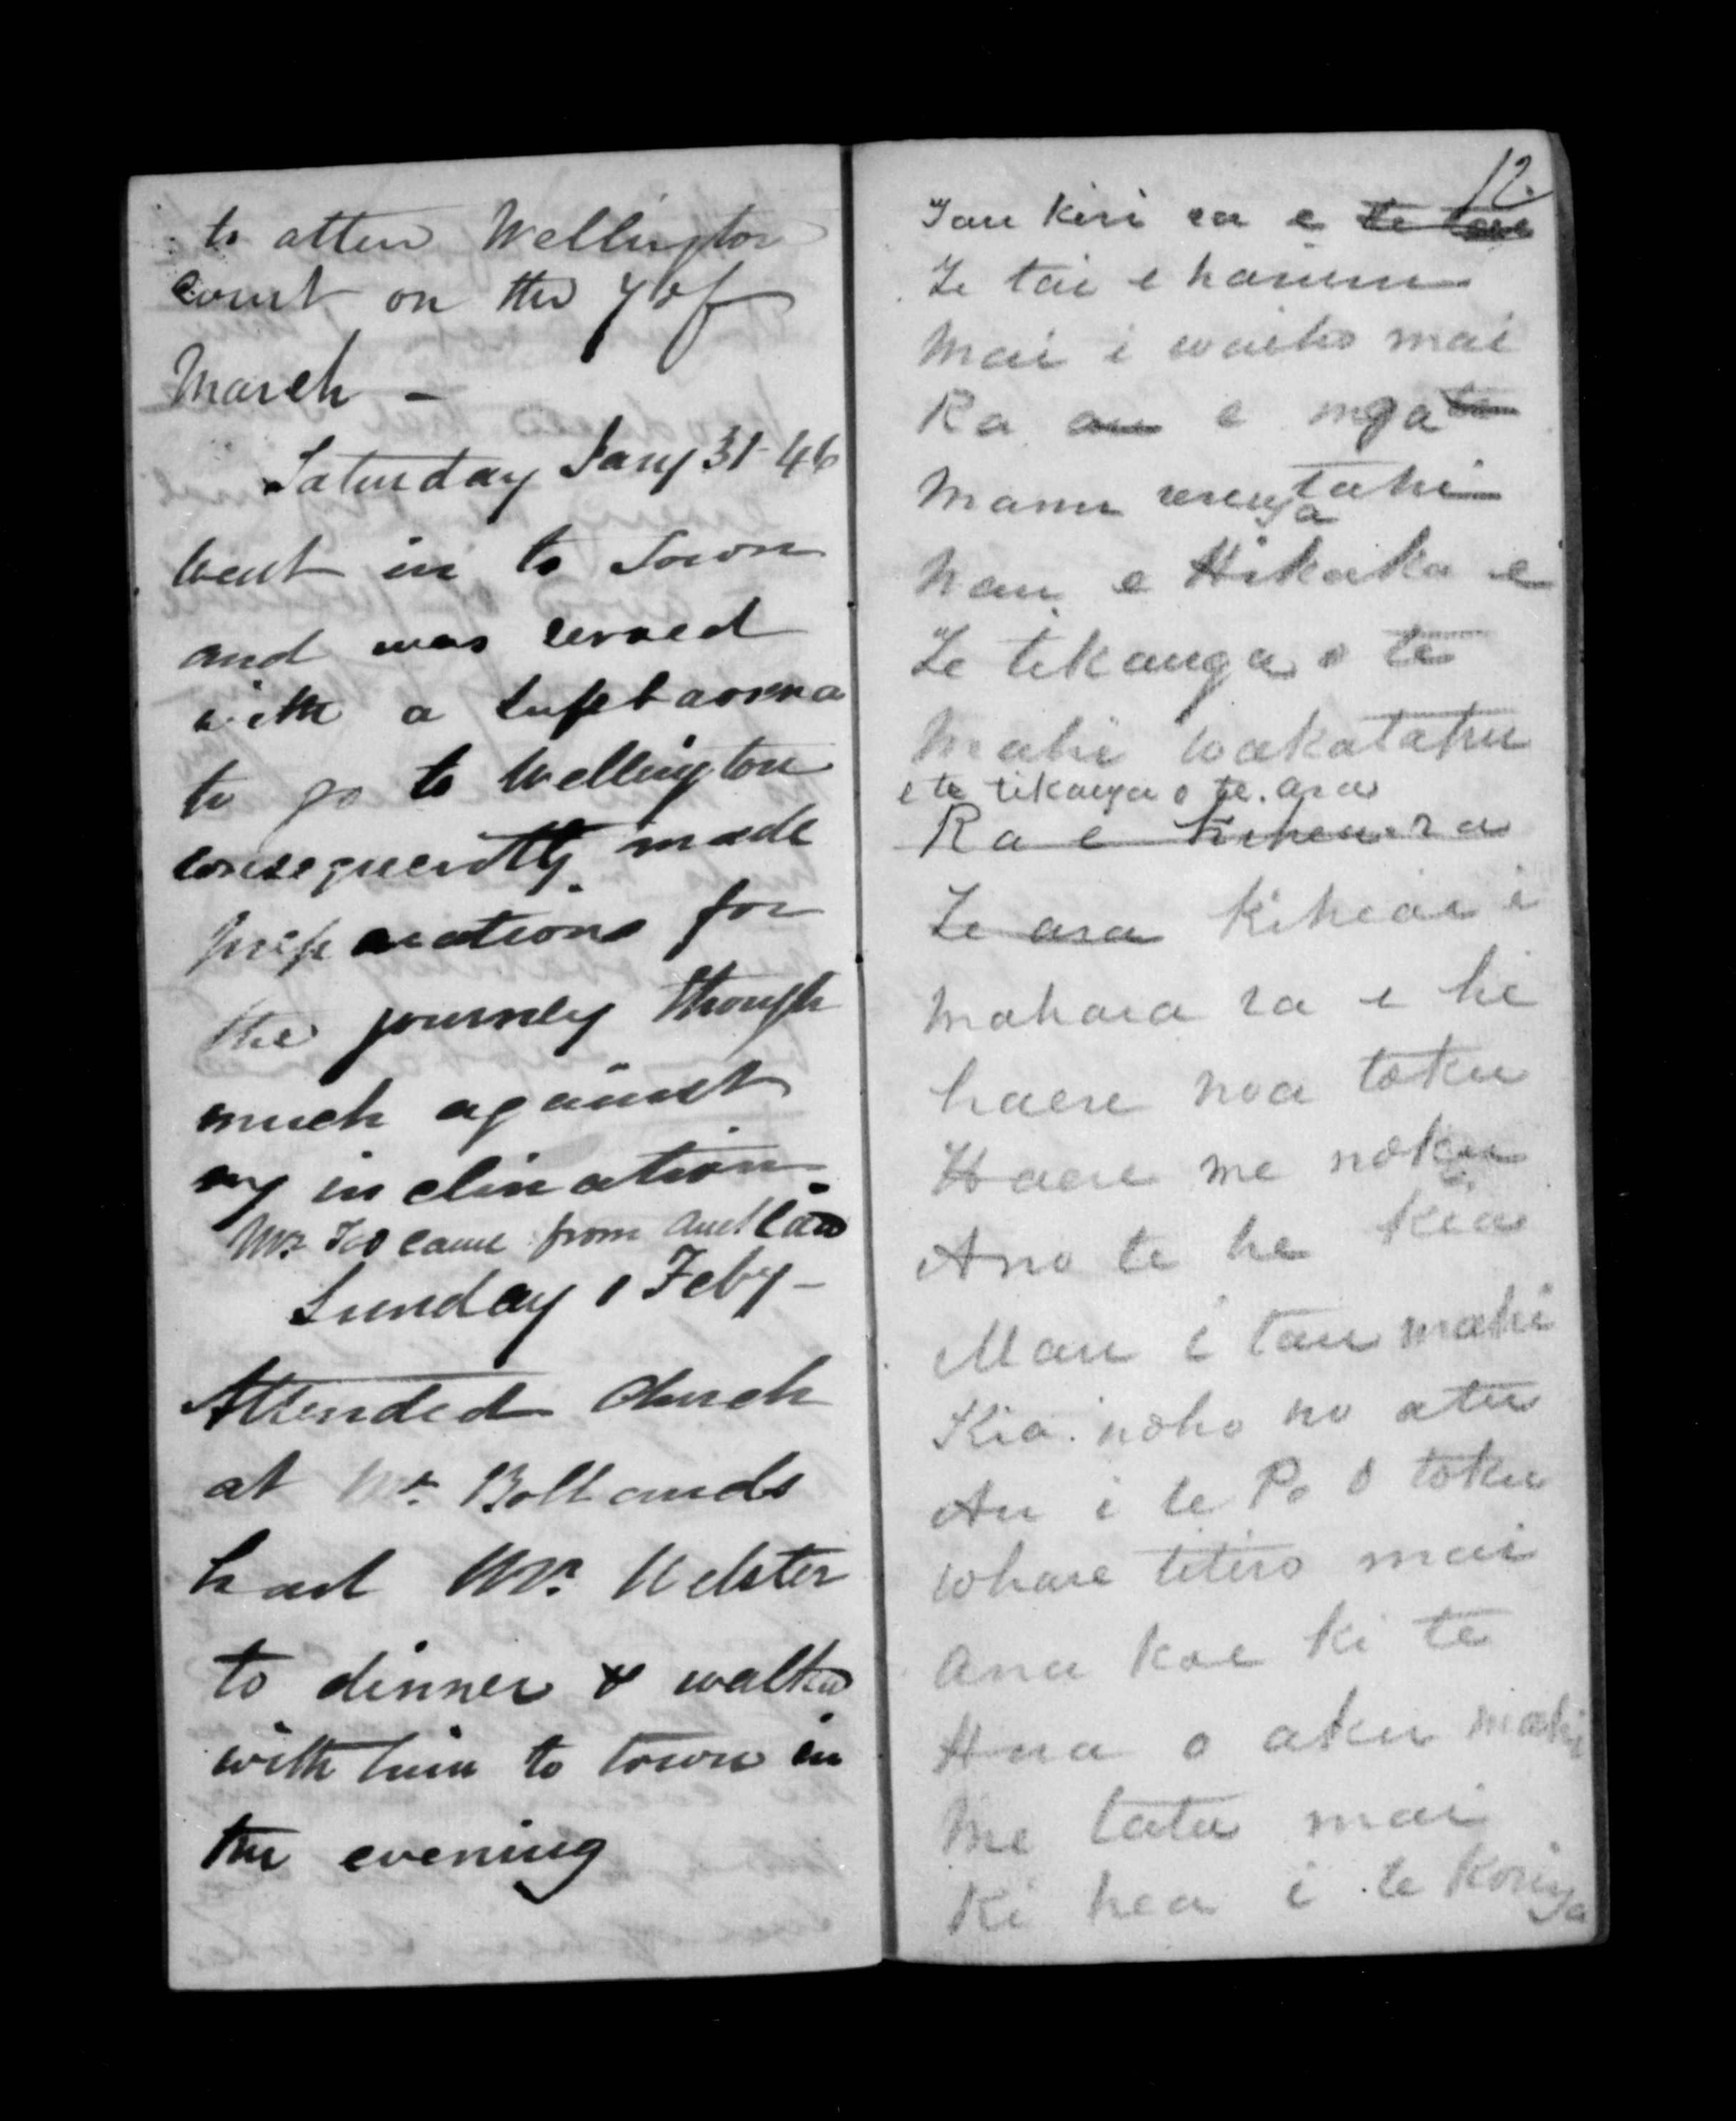 to atten Wellington
court on the 7 of
March –
Saturday Jany 31 46
went in to Town
and was served
with a
to go to Wellington
consequently made
preparations for
the journey though
much against
my inclination.
Mr came from
Sunday 1 Feby –
Attended Church
at Mr. Bollands
had Mr. Webster
to dinner & walked
with him to town in
the evening
12.
Tau kiri ra e te
Te tai e
Mai i waiho mai
Ra au e nga te
Manu tahi
hau e Hikaka e
Te tikanga o te
Mahi wakatahu
e te tikanga o te ara
Ra e ra
Te ara Kiheai i
mahara ra e he
haere noa toku
Haere me noku
Ano te he kia
Mau i tau mahi
Kia noho no atu
Au i te Po o toku
whare titiro mai
ana koe ki te
Hua o aku mahi
Me tatu mai
Ki hea i te